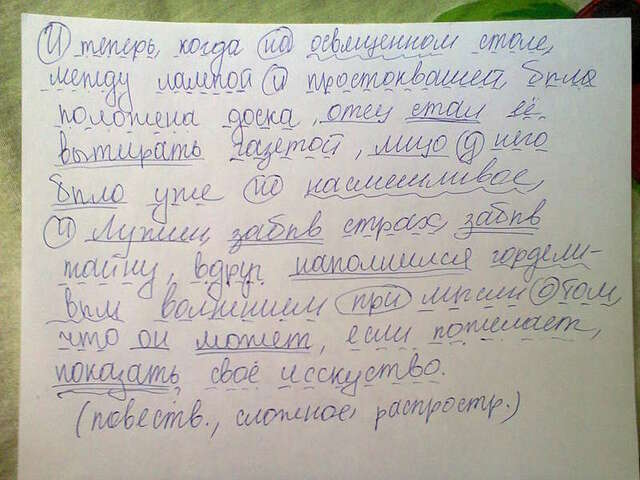 И теперь, когда на освященном столе,
между лампой и простоквашей, была
положена доска, отец стал её
вытирать газетой, лицо у него
было уже не насмешливое,
и Лужин, забыв страх, забыв
тайну, вдруг наполнился гордели-
вым волнением при мысли о том,
что он может, если пожелает,
показать своё исскуство.
(повеств., сложное, распростр.)